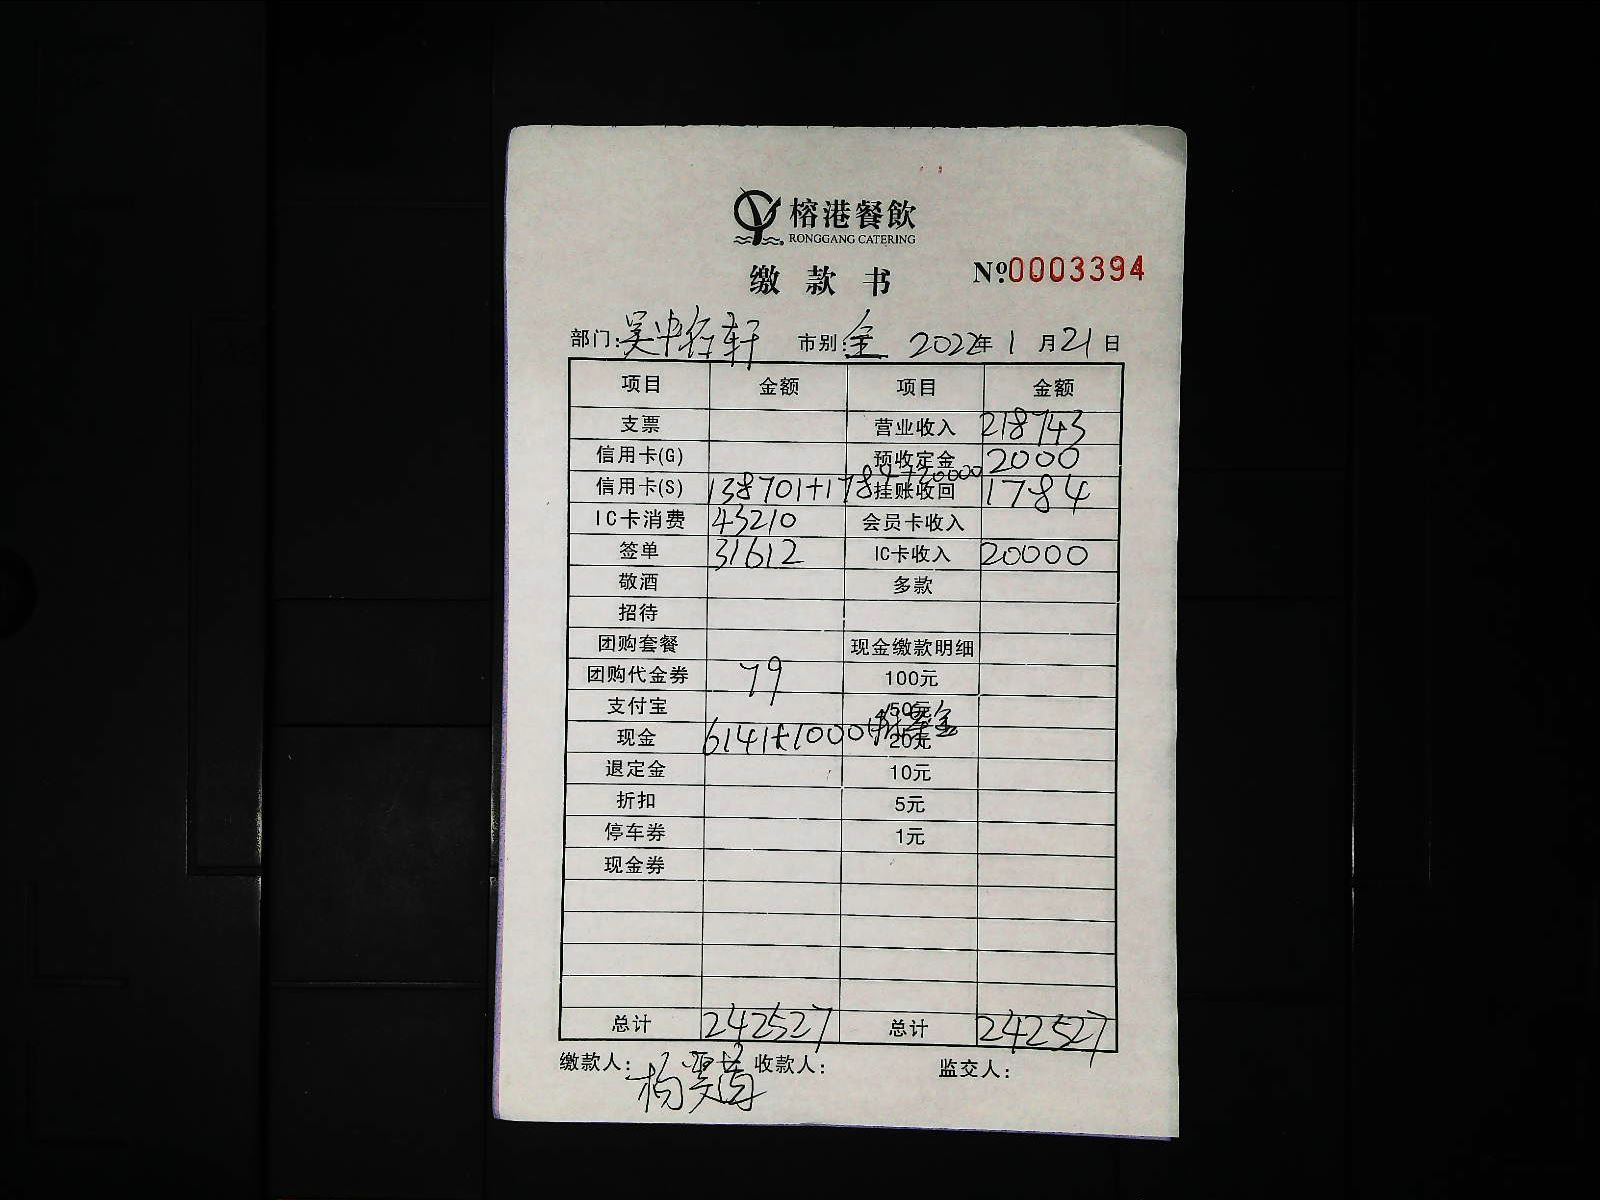 榕港餐飲
RONGGANG CATERING
缴款书 №0003394
部门: 吴中 轩 市别: 全 2022年1月21日
项目 金额 项目 金额
支票 营业收入 218743
信用卡(G) 预收定金 2000
信用卡(S) 138701+1784+20000 挂账收回 1784
IC卡消费 43210 会员卡收入
签单 31612 IC卡收入 20000
敬酒 多款
招待
团购套餐 现金缴款明细
团购代金券 79 100元
支付宝 50元
现金 6141+1000 20元
退定金 10元
折扣 5元
停车券 1元
现金券
总计 242527 总计 242527
缴款人: 杨 收款人: 监交人: